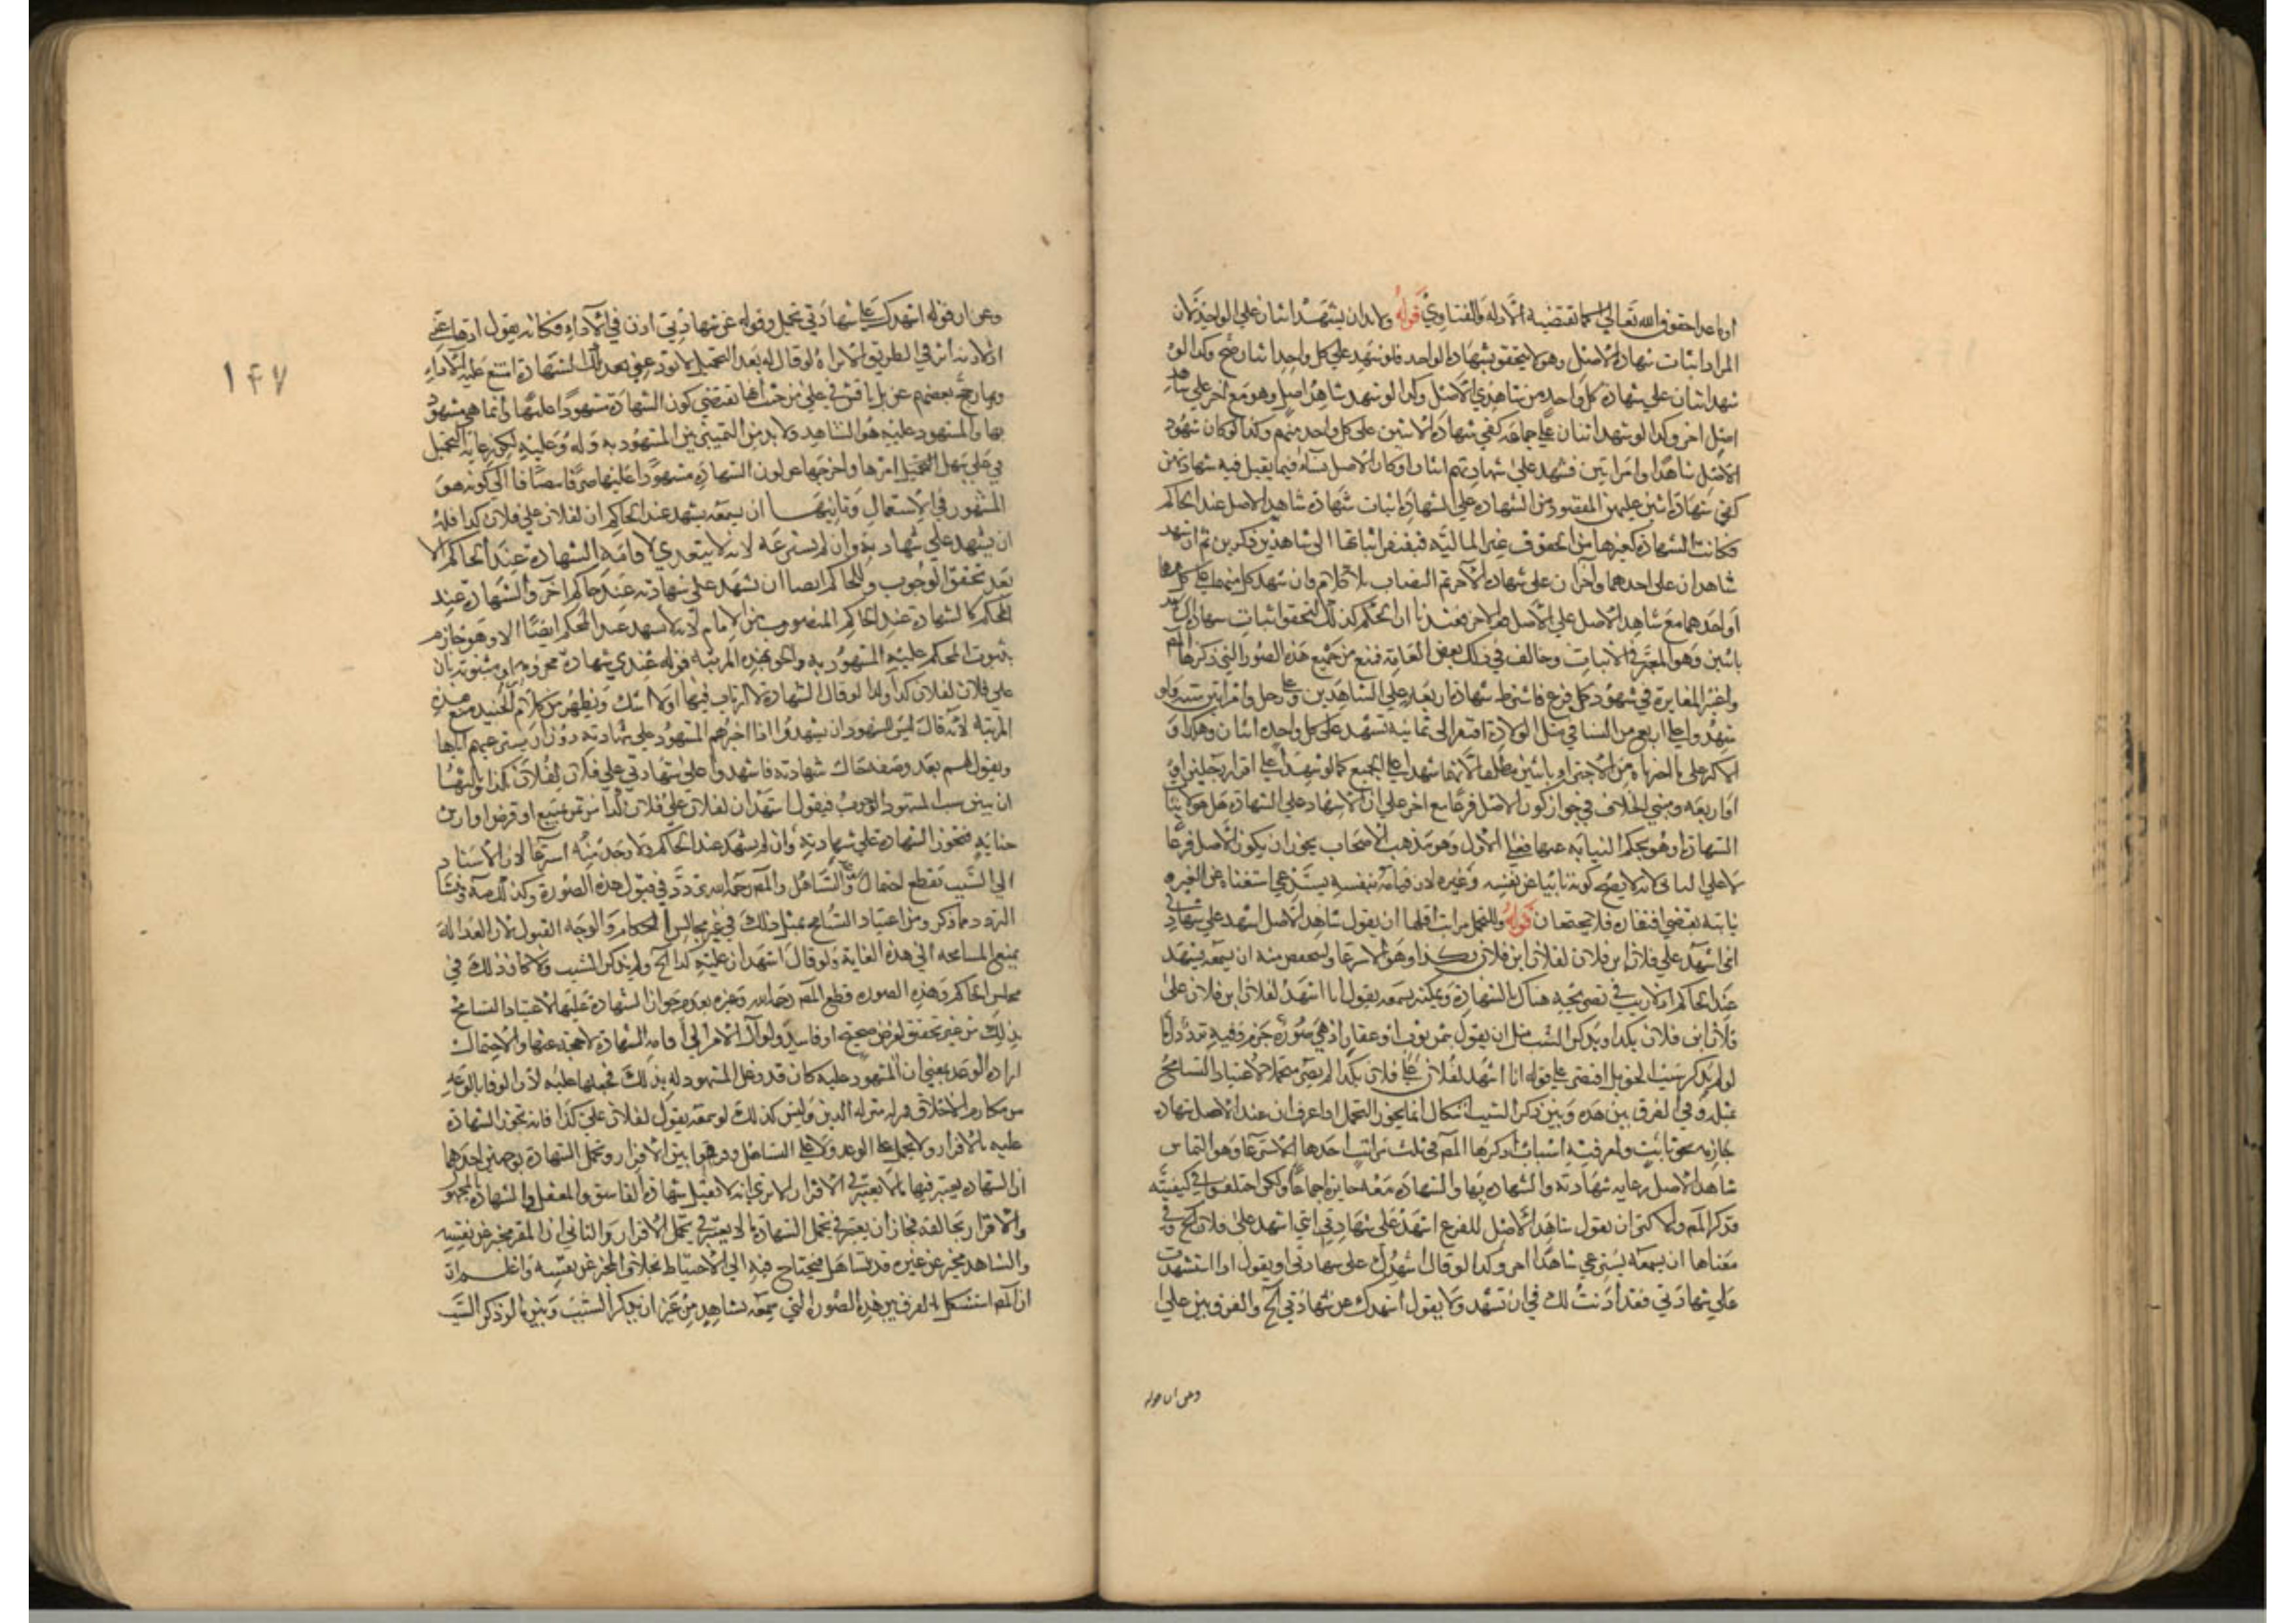 او ما عدا حقوق الله تعالى كما تقتضيه الادلة والفتاوى قوله ولابد ان يشهد اثنان على الواحد لان
المراد اثبات شهادة الاصل وهو لا يتحقق بشهادة الواحد فلو شهد على كل واحد اثنان صح وكذا لو
شهد اثنان على شهادة كل واحد من شاهدي الاصل وكذا لو شهد شاهد اصل وهو مع اخر على شاهد
اصل اخر وكذا لو شهد اثنان على جماعة كفى شهادة الاثنين على كل واحد منهم وكذا لو كان شهود
الاصل شاهدا وامراتين فشهد على شهادتهم اثنان او كان الاصل نساء فيما يقبل فيه شهادتهن
كفى شهادة اثنين عليهن المقصود من الشهادة على الشهادة اثبات شهادة شاهد الاصل عند الحاكم
فكانت الشهادة كغيرها من الحقوق غير المالية فيفتقر اثباتها الى شاهدين ذكرين ثم ان شهد
شاهدان على احدهما واخران على شهادة الآخر تم النصاب بلا كلام وان شهد كل منهما على كل منهما
او احدهما مع شاهد الاصل على الاصل الاخر فعندنا ان الحكم كذلك لتحقق اثبات شهادة كل واحد
باثنين وهو المعتبر في الاثبات وخالف في ذلك بعض العامة فمنع من جميع هذه الصور التي ذكرها المصنف
واعتبر المغايرة في شهود كل فرع فاشترط شهادة اربعة على الشاهدين وعلى رجل وامراتين ستة ولو
شهدوا على اربع من النساء في مثل الولادة افتقر الى ثمانية تشهد على كل واحدة اثنان وهكذا و
او اربعة ومبنى الخلاف في جواز كون الاصل فرعا مع اخر على ان الاشهاد على الشهادة هل هو لاثبات
الشهادة او هو بحكم النيابة عنها فعلى الاول وهو مذهب الاصحاب يجوز ان يكون الاصل فرعا
لا على الثاني لانه لا يصح كونه نائبا عن نفسه وغيره لان قيامه بنفسه يستدعي استغناءه عن الغير و
نيابته يقتضي افتقاره فلا يجتمعان قوله وللتحمل مراتب اتمها ان يقول شاهد الاصل اشهد على شهادتي
انى اشهد على فلان ابن فلان لفلان ابن فلان بكذا وهو الاسترعاء واخفض منه ان يسمعه يشهد
عند الحاكم اذ لا ريب في تصريحه هناك بالشهادة ويليه ان يسمعه يقول انا اشهد لفلان ابن فلان على
فلان ابن فلان بكذا ويذكر السبب مثل ان يقول من ثمن ثوب او عقار اذ هي صورة جزم وفيه تردد اما
لو لم يذكر سبب الحق بل اقتصر على قوله انا اشهد لفلان على فلان بكذا لم يصر متحملا لاعتياد التسامح
بمثله وفي الفرق بين هذه وبين ذكر السبب اشكال انما يجوز التحمل اذا عرف ان عند الاصل شهادة
جازمة بحق ثابت ولمعرفته اسباب ذكرها المصنف في ثلث مراتب احدها الاسترعاء وهو التماس
شاهد الاصل رعاية شهادته والشهادة بها والشهادة معه جايزة اجماعا ولكن اختلفوا في كيفيته
فذكر المصنف والاكثر ان يقول شاهد الاصل للفرع اشهد على شهادتي انني اشهد على فلان الخ وفي
معناها ان يسمعه يسترعي شاهدا اخر وكذا لو قال اشهدك على شهادتي او يقول اذا استشهدت
على شهادتي فقد اذنت لك في ان تشهد ولا يقول اشهدك عن شهادتي الخ والفرق بين على
وعن ان قوله
وعن ان قوله اشهدك على شهادتي تحمل وقوله عن شهادتي اذن في الاداء فكانه يقول ادها عني
اذ لاذنه اثر في الطريق الا تراه لو قال له بعد التحمل لا تؤد عني بعد تلك الشهادة امتنع عليه الاداء
وربما رجح بعضهم عن بل ناقش في على من حيث انها تقتضي كون الشهادة مشهودا عليها وانما هي مشهود
بها والمشهود عليه هو الشاهد ولابد من التمييز بين المشهود به وله وعليه لكن رعاية التحمل
في على سهل التحمل امرها واخرجها عن كون الشهادة مشهودا عليها صرفا مضافا الى كونه هو
المشهور في الاستعمال وثانيها ان يسمعه يشهد عند الحاكم ان لفلان على فلان كذا فله
ان يشهد على شهادته وان لم يسترعه لانه لا يتعدى لاقامة الشهادة عند الحاكم الا
بعد تحقق الوجوب وللحاكم ايضا ان يشهد على شهادته عند حاكم اخر والشهادة عند
المحكم كالشهادة عند الحاكم المنصوب من الامام لانه لا يشهد عند المحكم ايضا الا وهو جازم
بثبوت الحكم عليه المشهود به والحق بهذه المرتبة قوله عندي شهادة مجزومة او مثبوتة بان
على فلان لفلان كذا وكذا لو قال الشهادة لا ارتاب فيها او لا اشك ويظهر من كلام الجنيد منع هذه
المرتبة لانه قال ليس للشهود ان يشهدوا اذا اخبرهم المشهود على شهادته دون ان يسترعيهم اياها
ويقول لهم بعد وصفه حال شهادته فاشهدوا على شهادتي على فلان لفلان بكذا وثالثها
ان يبين سبب المشهود الوجوب فيقول اشهد ان لفلان على فلان كذا من ثمن مبيع او قرض او ارش
جناية فتجوز الشهادة على شهادته وان لم يشهد عند الحاكم ولا وجد منه استرعاء لان الاسناد
الى السبب يقطع احتمال الوعد والتساهل والمصنف رحمه الله تردد في قبول هذه الصورة وكذا العلامة ومنشا
التردد مما ذكر ومن اعتياد التسامح بمثل ذلك في غير مجالس الحكام والوجه القبول لان العدالة
يمنع المسامحة الى هذه الغاية ولو قال اشهد ان عليه كذا الخ ولم يذكر السبب ولا كان ذلك في
مجلس الحاكم وهذه الصورة قطع المصنف رحمه الله وغيره بعدم جواز الشهادة عليها لاعتياد التسامح
بذلك من غير تحقق لغرض صحيح او فاسد ولو آل الامر الى اقامة الشهادة لاحجم عنها والاحتمال
ارادة الوعد بمعنى ان المشهود عليه كان قد وعد المشهود له بذلك فجعلها عليه لان الوفا بالوعد
من مكارم الاخلاق فنزله منزلة الدين وليس كذلك لو سمعه يقول لفلان علي كذا فانه تجوز الشهادة
عليه بالاقرار ولا يحمل على الوعد ولا على التساهل وفرقوا بين الاقرار وتحمل الشهادة بوجهين احدهما
ان الشهادة يعتبر فيها ما لا يعتبر في الاقرار الا ترى انه لا تقبل شهادة الفاسق والمغفل والشهادة المجهول
والاقرار بخالفه فجاز ان يعتبر في تحمل الشهادة ما لا يعتبر في تحمل الاقرار والثاني ان المقر مخبر عن نفسه
والشاهد مخبر عن غيره قد يتساهل فيحتاج فيه الى الاحتياط بخلاف المخبر عن نفسه واعلم ان
ان المصنف استشكل الفرق بين هذه الصورة التي سمعه شاهد من غير ان يذكر السبب وبين ما لو ذكر السبب
١٤٧